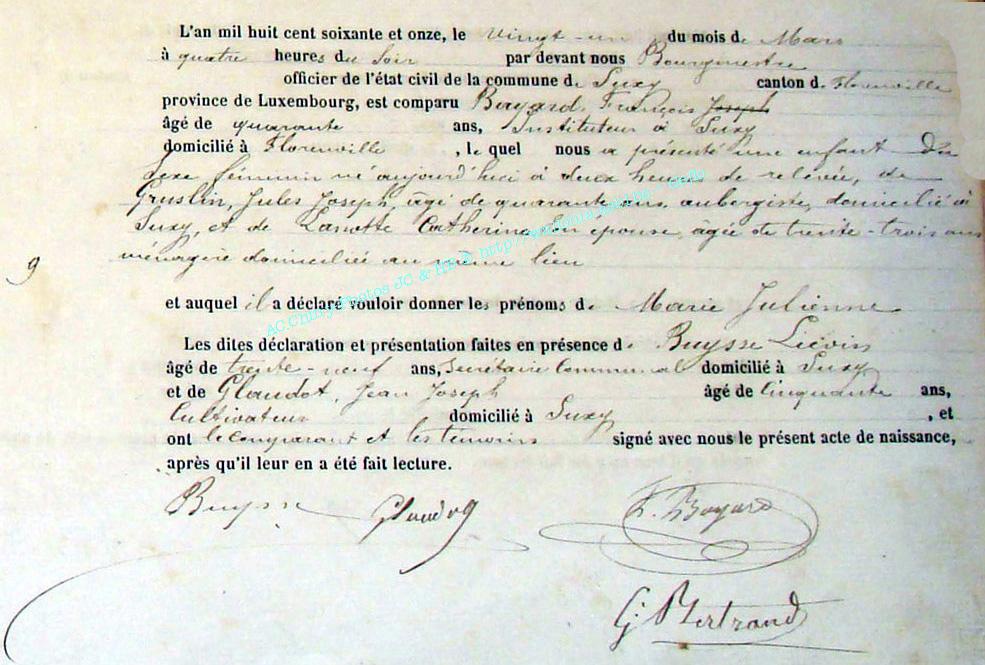 L'an mil huit cent soixante et onze, le vingt-un du mois de Mars
à quatre heures du Soir par devant nous Bourgmestre
officier de l'état civil de la commune de Suxy canton de Florenville
province de Luxembourg, est comparu Bayard, François Joseph
âgé de quarante ans, Instituteur à Suxy
domicilié à Florenville , le quel nous a présenté une enfant du
Sexe féminin né aujourd'hui à deux heures de relevée, de
Gruslin, Jules Joseph, âgé de quarante ans, aubergiste, domicilié à
Suxy, et de Lanotte Catherine, Son épouse, âgée de trente-trois ans
9 ménagère domiciliée au même lieu
et auquel il a déclaré vouloir donner les prénoms de Marie Julienne
Les dites déclaration et présentation faites en présence de Buysse Liévin
âgé de trente-neuf ans, Secrétaire Communal domicilié à Suxy
et de Glaudot, Jean Joseph âgé de Cinquante ans,
Cultivateur domicilié à Suxy , et
ont le comparant et les témoins signé avec nous le présent acte de naissance,
après qu'il leur en a été fait lecture.
Buysse Glaudot F. Bayard
G. Bertrand
AC Chiny Photos JC &